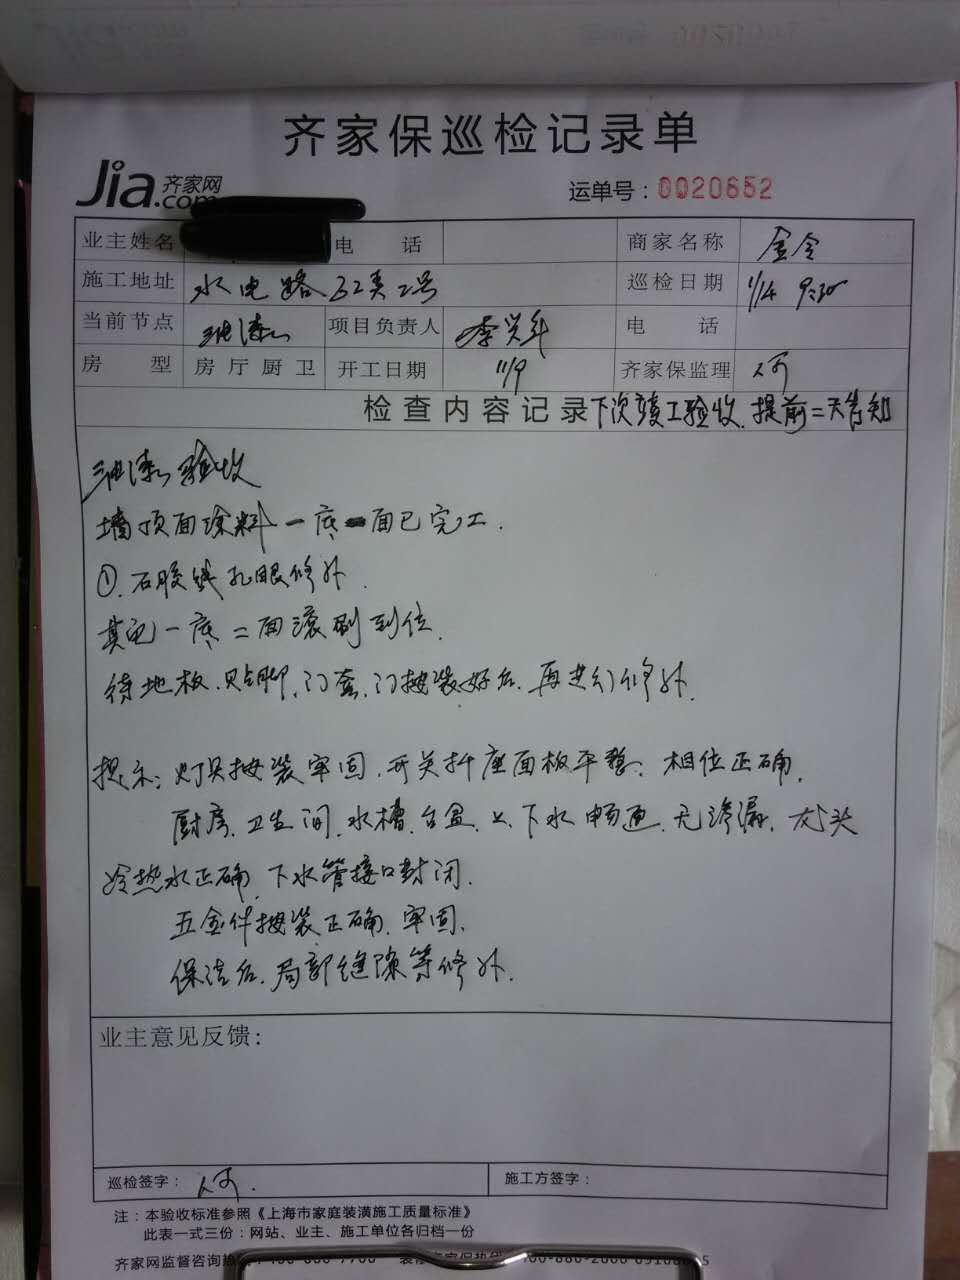 齐家保巡检记录单
Jia.com 齐家网
运单号：0020652
业主姓名 电 话 商家名称 金令
施工地址 水电路 2号 巡检日期 1/14 9:30
当前节点 油漆 项目负责人 李兴年 电 话
房 型 房厅厨卫 开工日期 11/9 齐家保监理 何
检查内容记录 下次竣工验收，提前二天告知
油漆验收
墙顶面涂料一底一面已完工.
①.石膏线孔眼修补.
其它一底二面滚刷到位.
待地板.贴脚,门套,门按装好后.再进行修补.
提示：灯具按装牢固,开关插座面板平整、相位正确.
厨房.卫生间.水槽.台盆.上.下水畅通.无渗漏.龙头
冷热水正确.下水管接口封闭.
五金件按装正确.牢固.
保洁后.局部缝隙等修补.
业主意见反馈：
巡检签字： 何.
施工方签字：
注：本验收标准参照《上海市家庭装潢施工质量标准》
此表一式三份：网站、业主、施工单位各归档一份
齐家网监督咨询热